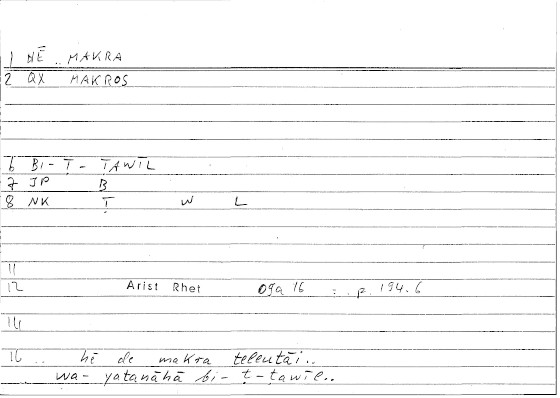 1 HĒ .. MAKRA
2 QX MAKROS
6 BI- Ṭ- ṬAWĪL
7 JP B
8 NK Ṭ W L
11
12 Arist Rhet 09a 16 = . p. 194.6
14
16 .. hē de makra teleutāi..
wa- yatanāhā bi- ṭ-ṭawīl..